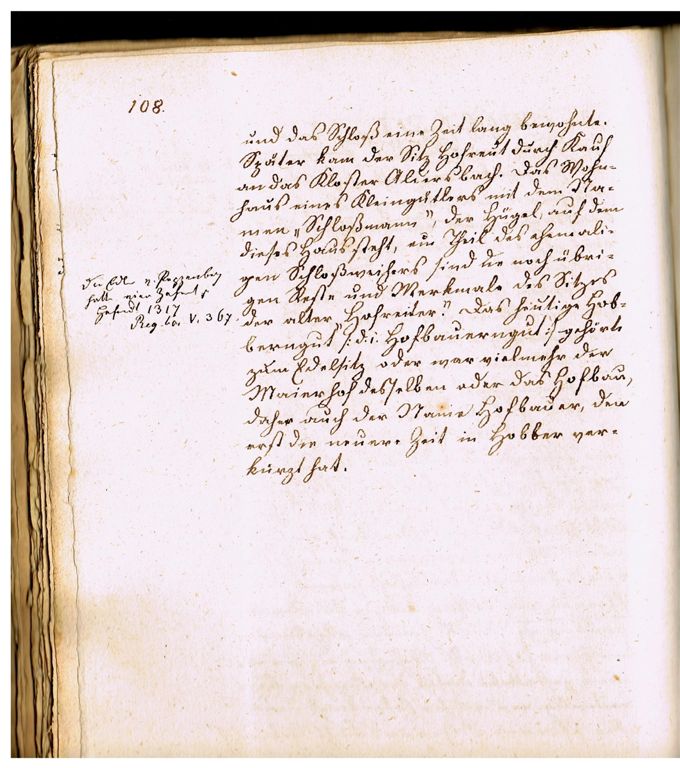 108.
und das Schloß eine Zeit lang bewohnte.
Später kam der Sitz Hofreut durch Kauf
an das Kloster Aldersbach. Das Wohn-
haus eines Kleingütlers mit dem Na-
men „Schloßmann", der Hügel, auf dem
dieses Haus steht, ein Theil des ehemali-
gen Schloßweihers sind die noch übri-
gen Reste und Merkmale des Sitzes
der alten „Hofreuter." Das heutige Hob-
berngut /:d:i: Hofbauerngut:/ gehörte
zum Edelsitz oder war vielmehr der
Maierhof desselben oder das Hofbau,
daher auch der Name Hofbauer, den
erst die neuere Zeit in Hobber ver-
kürzt hat.
v.
hatte vier
1317
Reg. boi V. 367.